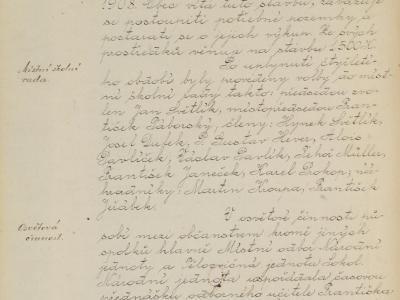 1908. Obec vítá tuto stavbu, zavazuje
se postoupiti potřebné pozemky a
postarati se o jejich výkup ze svých
prostředků věnuje na stavbu 2500 K.
Místní školní
rada.
Po uplynutí čtyřleté-
ho období byly provedeny volby do míst-
ní školní rady takto: předsedou zvo-
len Jan Světlík, místopředsedou Fran-
tišek Táborský, členy: Hynek Světlík,
Josef Dufek, P. Gustav Hever, Alois
Pavlíček, Václav Pavlík, Řehoř Müller,
František Janeček, Karel Prokop; ná-
hradníky: Martin Koupa, František
Jeřábek.
Osvětová
činnost.
V osvětové činnosti pů-
sobí mezi občanstvem kromě jiných
spolků hlavně Místní odbor Národní
jednoty a Tělocvičná jednota Sokol.
Národní jednota uspořádala časovou
přednášku odborného učitele Františka